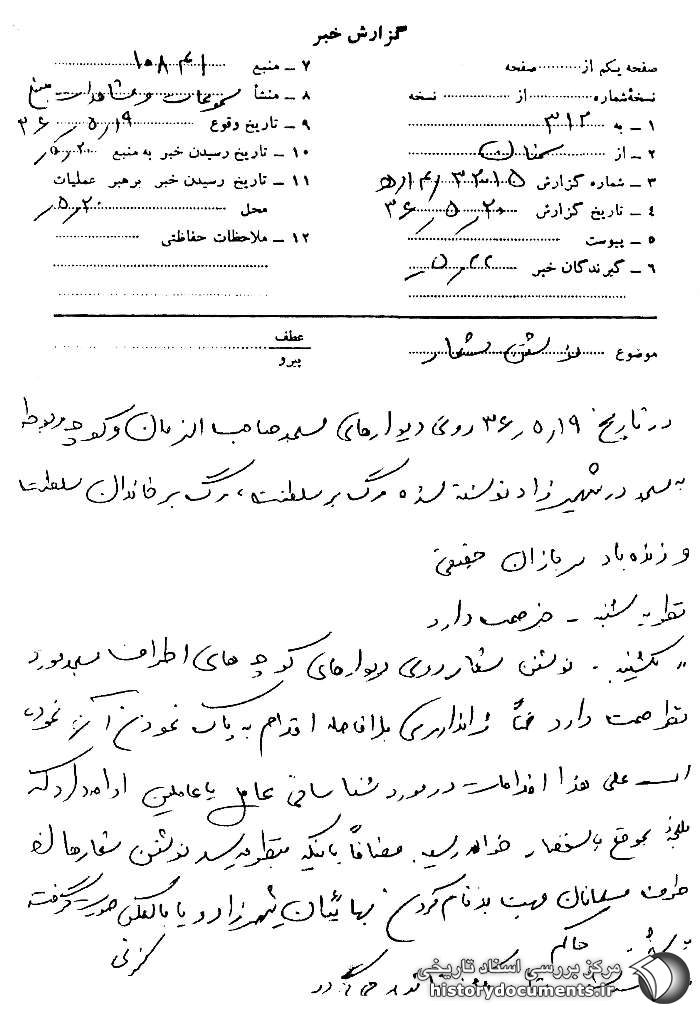 گزارش خبر
صفحه یکم از ........ صفحه
نسخه شماره ........ از ........ نسخه
۱ – به ۳۱۲
۲ – از سمنان
۳ – شماره گزارش
۴ – تاریخ گزارش ۳۶٫۵٫۲۰
۵ – پیوست
۶ – گیرندگان خبر ۵٫۲۲
۷ – منبع ۱۰۸۴۱
۸ – منشأ مسموعات و مشاهدات منبع
۹ – تاریخ وقوع ۳۶٫۵٫۱۹
۱۰ – تاریخ رسیدن خبر به منبع ۵٫۲۰
۱۱ – تاریخ رسیدن خبر برهبر عملیات
محل ۵٫۲۰
۱۲ – ملاحظات حفاظتی
موضوع نوشتن شعار
عطف
پیرو
در تاریخ ۳۶٫۵٫۱۹ روی دیوارهای مسجد صاحب الزمان و کوچه مربوطه
به مسجد در شهمیرزاد نوشته شده مرگ بر سلطنت، مرگ بر خاندان سلطنت
و زنده باد سربازان حقیقی
نظریه شنبه – خبر صحت دارد
" یکشنبه – نوشتن شعار روی دیوارهای کوچه های اطراف مسجد مورد
نظر صحت دارد ضمناً ژاندارمری بلافاصله اقدام به پاک نمودن آن نموده
است علی هذا اقدامات در مورد شناسائی عامل یا عاملین ادامه دارد که
نتیجه بموقع باستحضار خواهد رسید. مضافاً باینکه بنظر میرسد نوشتن شعارها از
طرف مسلمانان جهت بدنام کردن بهائیان شهمیرزاد و یا بالعکس صورت گرفته
حاکم
مرکز بررسی اسناد تاریخی
historydocuments.ir